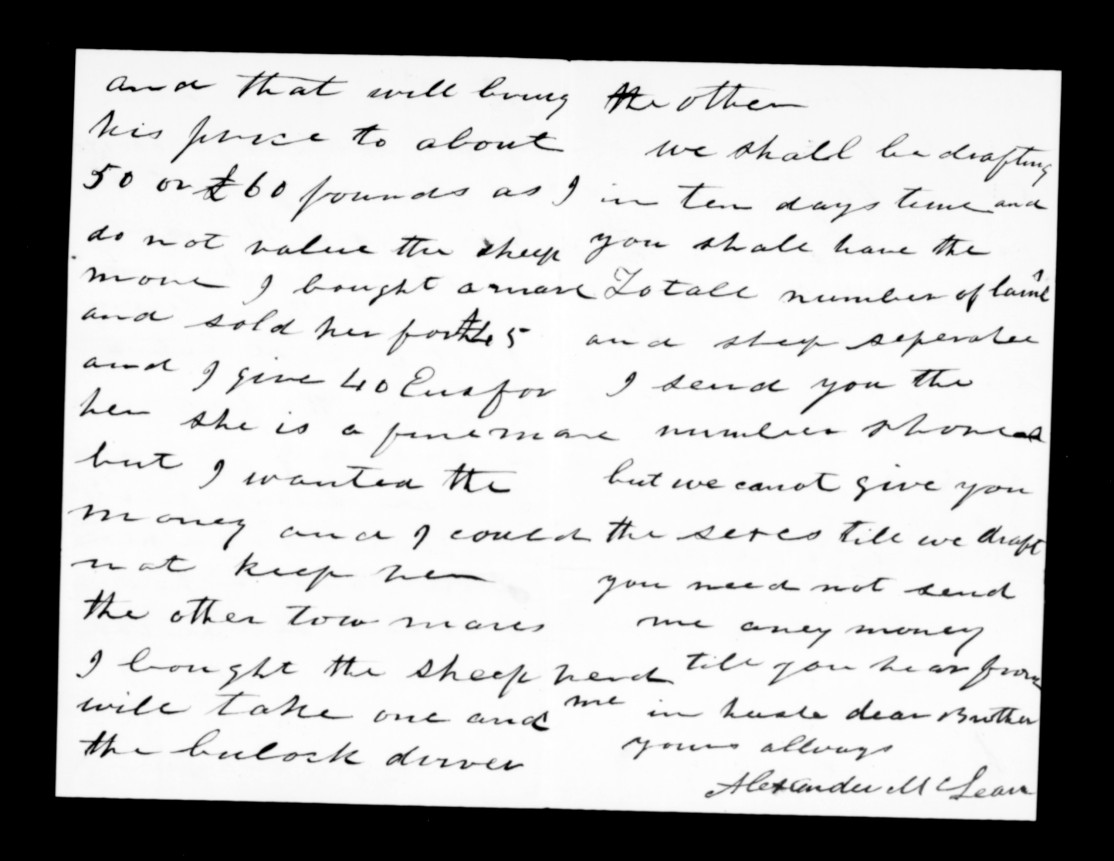 and that will bring
his price to about
50 or £60 pounds as I
do not value the sheep
more I bought a mare
and sold her for £45
and I give 40 Eus for
her she is a fine mare
but I wanted the
money and I could
not keep her
the other tow mares
I bought the sheep herd
will take one and
the bulock driver
the other
we shall be drafting
in ten days time and
you shall have the
Totall number of lamb
and sheep seperatee
I send you the
number shorned
but we canot give you
the sexes till we draft
you need not send
me aney money
till you hear from
me in haste dear Brother
yours allways
Alexander McLean